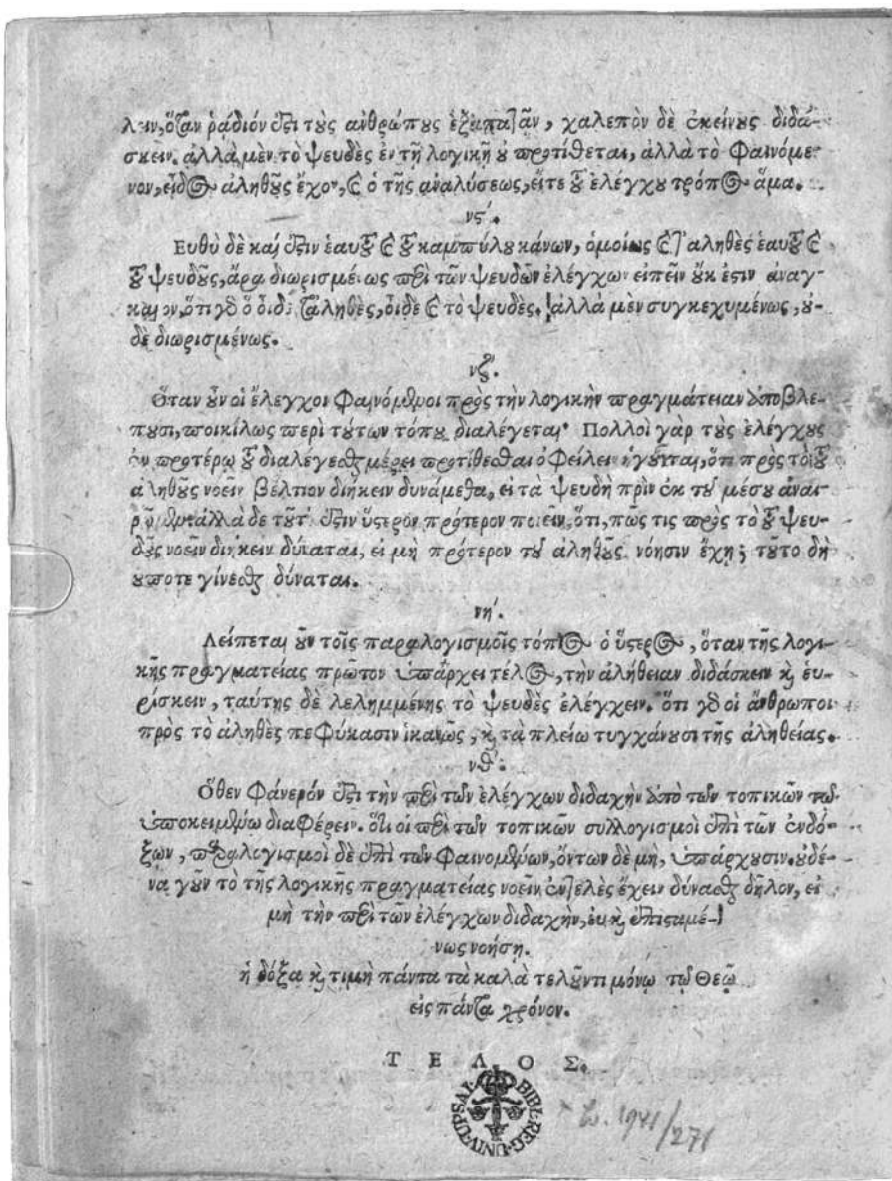 λειν, ὅταν ῥάδιόν ἐστι τοὺς ἀνθρώπους ἐξαπατᾶν, χαλεπὸν δὲ ἐκείνους διδά-
σκειν. ἀλλὰ μὲν τὸ ψευδὲς ἐν τῇ λογικῇ οὐ προτίθεται, ἀλλὰ τὸ Φαινόμε-
νον, εἶδος ἀληθοῦς ἔχον, καὶ ὁ τῆς ἀναλύσεως, εἴτε τοῦ ἐλέγχου τρόπος ἅμα.
νϛ΄.
Εὐθὺ δὲ καὶ ἐστιν ἑαυτοῦ καὶ τοῦ καμπύλου κάνων, ὁμοίως καὶ τ' ἀληθὲς ἑαυτοῦ καὶ
τοῦ ψευδοῦς, ἄρα διωρισμένως περὶ τῶν ψευδῶν ἐλέγχων εἰπεῖν οὔκ ἐστιν ἀναγ-
καῖον, ὅτι γὰρ ὁ οἶδε τἀληθὲς, οἶδε καὶ τὸ ψευδὲς. ἀλλὰ μὲν συγκεχυμένως, οὐ-
δὲ διωρισμένως.
νζ΄.
Ὅταν οὖν οἱ ἔλεγχοι Φαινόμενοι πρὸς τὴν λογικὴν πραγμάτειαν ἀποβλέ-
πουσι, ποικίλως περὶ τούτων τόπου διαλέγεται· Πολλοὶ γὰρ τοὺς ἐλέγχους
ἐν προτέρῳ τοῦ διαλέγεσθαι μέρει προτίθεσθαι ὀφείλειν ἡγοῦνται, ὅτι πρὸς τὸ τοῦ
ἀληθοῦς νοεῖν βέλτιον διήκειν δυνάμεθα, εἰ τὰ ψευδῆ πρὶν ἐκ τοῦ μέσου ἀναι-
ροῦμεν. ἀλλὰ δὲ τοῦτ' ἐστιν ὕστερον πρότερον ποιεῖν, ὅτι, πῶς τις πρὸς τὸ τοῦ ψευ-
δοῦς νοεῖν διήκειν δύναται, εἰ μὴ πρότερον τοῦ ἀληθοῦς νόησιν ἔχῃ; τοῦτο δὴ
οὔποτε γίνεσθαι δύναται.
νη΄.
Λείπεται οὖν τοῖς παραλογισμοῖς τόπος ὁ ὕστερος, ὅταν τῆς λογι-
κῆς πραγματείας πρῶτον ὑπάρχει τέλος, τὴν ἀλήθειαν διδάσκειν καὶ εὑ-
ρίσκειν, ταύτης δὲ λελημμένης τὸ ψευδὲς ἐλέγχειν. ὅτι γὰρ οἱ ἄνθρωποι
πρὸς τὸ ἀληθὲς πεφύκασιν ἱκανῶς, καὶ τὰ πλείω τυγχάνουσι τῆς ἀληθείας.
νθ΄.
Ὅθεν Φάνερόν ἐστι τὴν περὶ τῶν ἐλέγχων διδαχὴν ἀπὸ τῶν τοπικῶν τῷ
ὑποκειμένῳ διαφέρειν. ὅτι οἱ περὶ τῶν τοπικῶν συλλογισμοὶ ἐπὶ τῶν ἐνδό-
ξων, παραλογισμοὶ δὲ ἐπὶ τῶν Φαινομένων, ὄντων δὲ μὴ, ὑπάρχουσιν. οὐδέ-
να γοῦν τὸ τῆς λογικῆς πραγματείας νοεῖν ἐντελὲς ἔχειν δύνασθαι δῆλον, εἰ
μὴ τὴν περὶ τῶν ἐλέγχων διδαχὴν, εὖ καὶ ἐπισταμέ-
νως νοήσῃ.
ἡ δόξα καὶ τιμὴ πάντα τὰ καλὰ τελοῦντι μόνῳ τῷ Θεῷ
εἰς πάντα χρόνον.
ΤΕΛΟΣ.
UNIV. UPSAL. BIBL. REG.
1941/271